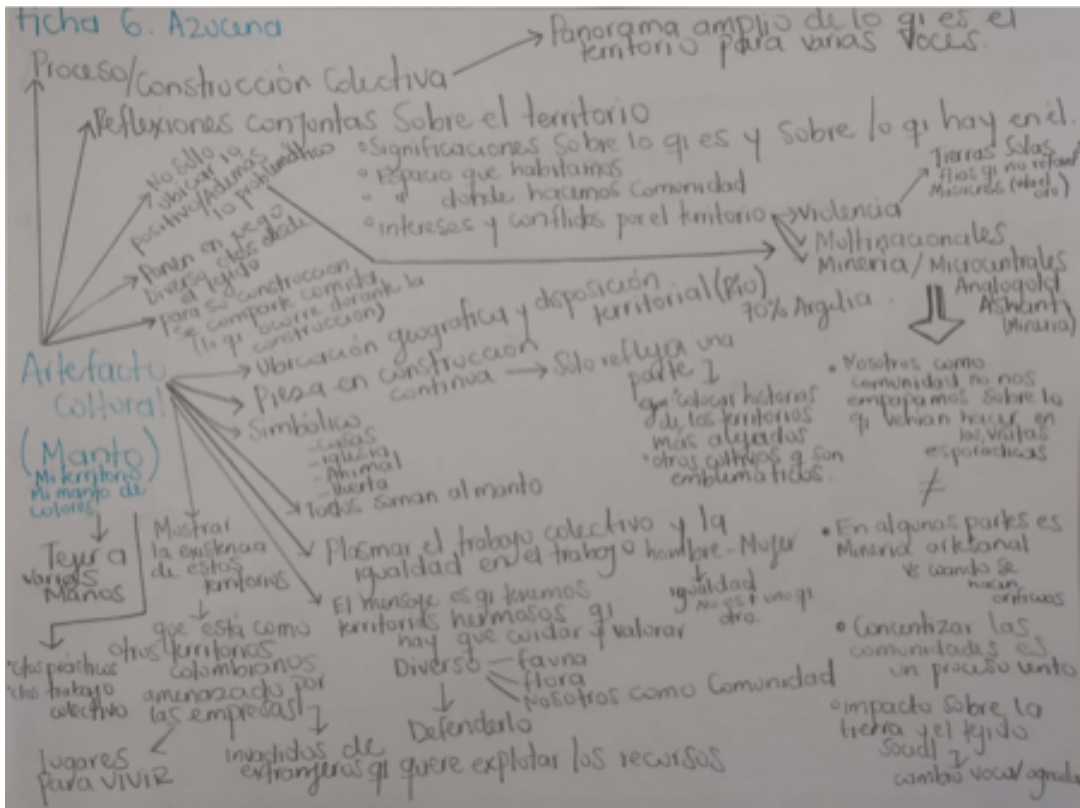 ficha 6. Azucena
Panorama amplio de lo qi es el
territorio para varias voces.
Proceso/Construcción Colectiva
Reflexiones conjuntas Sobre el territorio
°Significaciones Sobre lo qi es y sobre lo qi hay en él.
°Espacio que habitamos
° " donde hacemos comunidad
°intereses y conflictos por el territorio
Violencia
Tierras Solas
Multinacionales
Minería/Microcentrales
Anglogold
Ashanti
(Minería)
70% Argelia.
No sólo
ubicar lo
positivo/Además
lo problemático
Ponen en juego
Diversos ctos desde
el tejido
para su construcción
se comparte comida
(lo qi ocurre durante la
construcción)
Artefacto
Cultural
(Manto)
Mi territorio
Mi manto de
colores
Ubicación geográfica y disposición
territorial (Río)
Pieza en construcción
continua
Sólo refleja una
parte
colocar historias
de los territorios
más alejados
°otros cultivos q son
emblemáticos.
Simbólico
-Casas
-iglesia
-Animal
-Huerta
Todos suman al manto
Plasmar el trabajo colectivo y la
igualdad en el trabajo hombre-Mujer
igualdad
El mensaje es qi tenemos
territorios hermosos qi
hay que cuidar y valorar
Diverso
fauna
flora
Nosotros como Comunidad
Defenderlo
Tejer a
varias
Manos
°ctos prácticos
°ctos trabajo
colectivo
Mostrar
la existencia
de estos
territorios
que está como
otros territorios
colombianos
amenazado por
las empresas
lugares
para VIVIR
invadidos de
extranjeros qi quere explotar los recursos
• Nosotros como
comunidad no nos
empapamos sobre lo
qi venían hacer en
las visitas
esporádicas
≠
• En algunas partes es
Minería artesanal
vs cuando se
hacen
• Concientizar las
comunidades es
un proceso lento
°impacto sobre la
tierra y el tejido
social
cambio